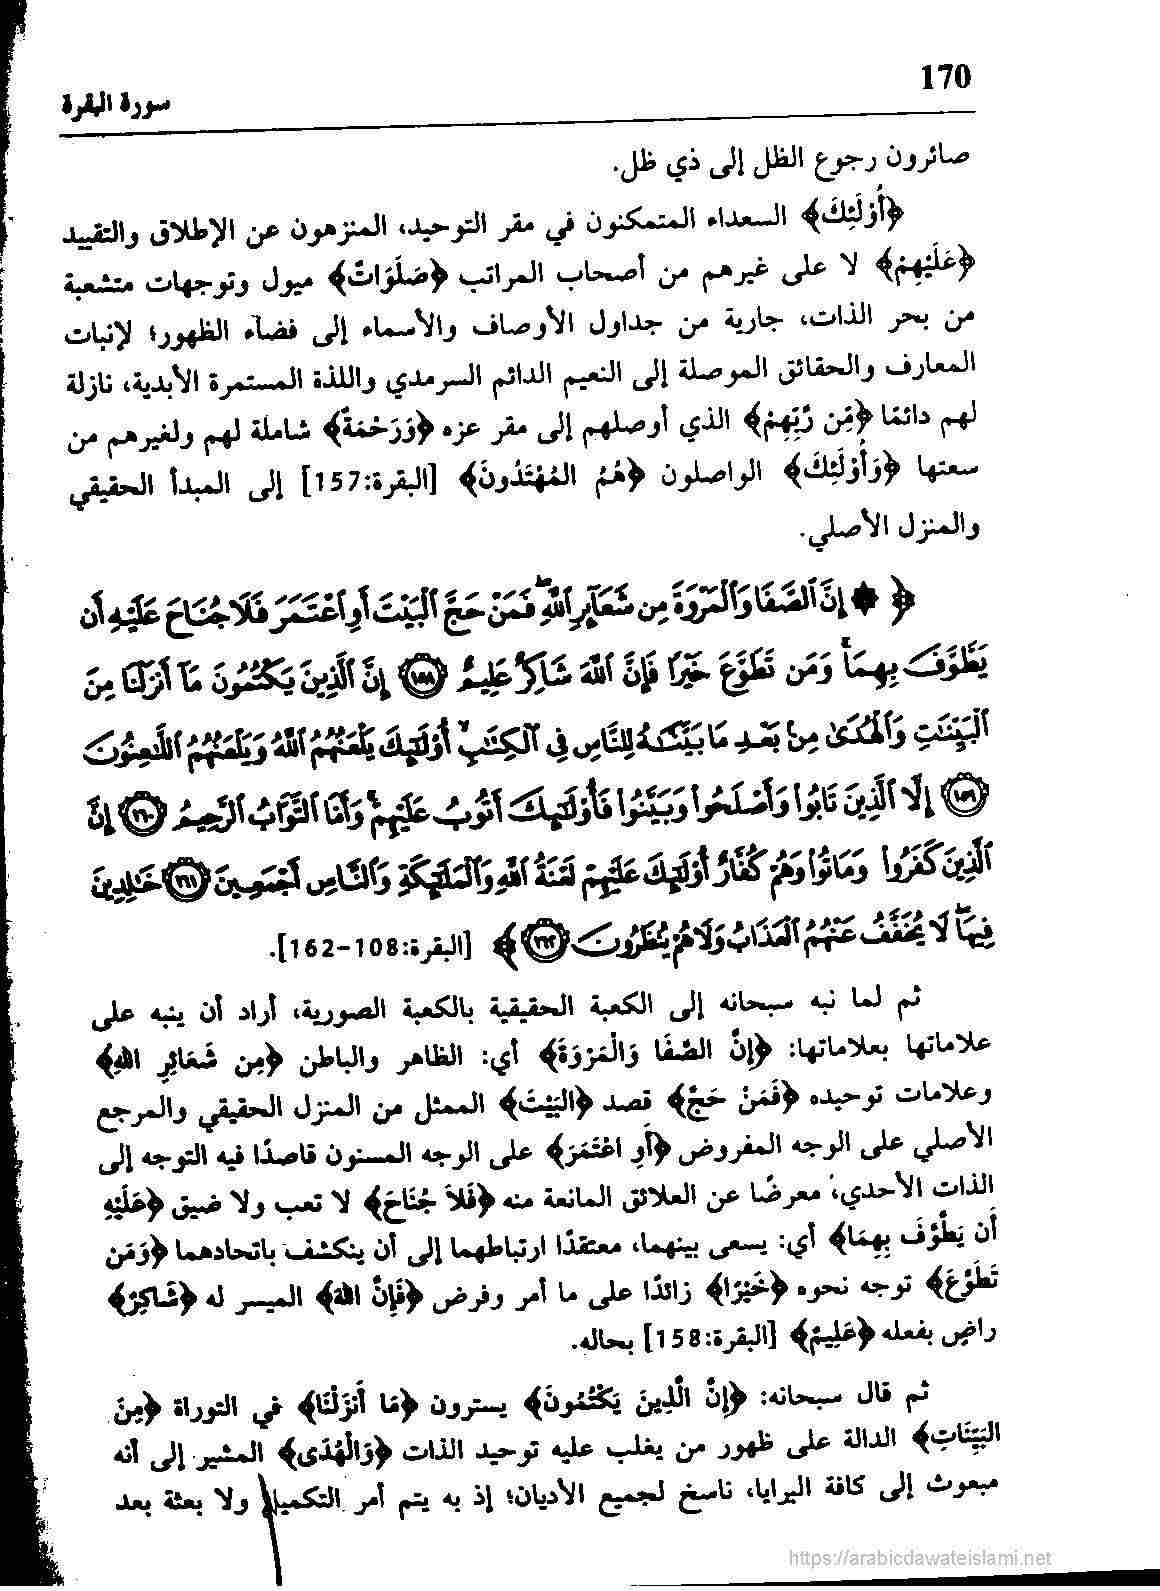 170
سورة البقرة
صائرون رجوع الظل إلى ذي ظل.
﴿أُوْلَئِكَ﴾ السعداء المتمكنون في مقر التوحيد، المنزهون عن الإطلاق والتقييد
﴿عَلَيْهِمْ﴾ لا على غيرهم من أصحاب المراتب ﴿صَلَوَاتٌ﴾ ميول وتوجهات متشعبة
من بحر الذات، جارية من جداول الأوصاف والأسماء إلى فضاء الظهور؛ لإنبات
المعارف والحقائق الموصلة إلى النعيم الدائم السرمدي واللذة المستمرة الأبدية، نازلة
لهم دائمًا ﴿مِّن رَّبِّهِمْ﴾ الذي أوصلهم إلى مقر عزه ﴿وَرَحْمَةٌ﴾ شاملة لهم ولغيرهم من
سعتها ﴿وَأُوْلَئِكَ﴾ الواصلون ﴿هُمُ المُهْتَدُونَ﴾ [البقرة:157] إلى المبدأ الحقيقي
والمنزل الأصلي.
﴿ ۞ إِنَّ ٱلصَّفَا وَٱلْمَرْوَةَ مِن شَعَآئِرِ ٱللَّهِ ۖ فَمَنْ حَجَّ ٱلْبَيْتَ أَوِ ٱعْتَمَرَ فَلَا جُنَاحَ عَلَيْهِ أَن
يَطَّوَّفَ بِهِمَا ۚ وَمَن تَطَوَّعَ خَيْرًا فَإِنَّ ٱللَّهَ شَاكِرٌ عَلِيمٌ ۝١٥٨ إِنَّ ٱلَّذِينَ يَكْتُمُونَ مَآ أَنزَلْنَا مِنَ
ٱلْبَيِّنَٰتِ وَٱلْهُدَىٰ مِنۢ بَعْدِ مَا بَيَّنَّٰهُ لِلنَّاسِ فِي ٱلْكِتَٰبِ ۙ أُوْلَٰٓئِكَ يَلْعَنُهُمُ ٱللَّهُ وَيَلْعَنُهُمُ ٱللَّٰعِنُونَ
۝١٥٩ إِلَّا ٱلَّذِينَ تَابُوا۟ وَأَصْلَحُوا۟ وَبَيَّنُوا۟ فَأُو۟لَٰٓئِكَ أَتُوبُ عَلَيْهِمْ ۚ وَأَنَا ٱلتَّوَّابُ ٱلرَّحِيمُ ۝١٦٠ إِنَّ
ٱلَّذِينَ كَفَرُوا۟ وَمَاتُوا۟ وَهُمْ كُفَّارٌ أُو۟لَٰٓئِكَ عَلَيْهِمْ لَعْنَةُ ٱللَّهِ وَٱلْمَلَٰٓئِكَةِ وَٱلنَّاسِ أَجْمَعِينَ ۝١٦١ خَٰلِدِينَ
فِيهَا ۖ لَا يُخَفَّفُ عَنْهُمُ ٱلْعَذَابُ وَلَا هُمْ يُنظَرُونَ ۝١٦٢ ﴾ [البقرة:108-162].
ثم لما نبه سبحانه إلى الكعبة الحقيقية بالكعبة الصورية، أراد أن ينبه على
علاماتها بعلاماتها: ﴿إِنَّ الصَّفَا وَالْمَرْوَةَ﴾ أي: الظاهر والباطن ﴿مِن شَعَائِرِ اللهِ﴾
وعلامات توحيده ﴿فَمَنْ حَجَّ﴾ قصد ﴿البَيْتَ﴾ الممثل من المنزل الحقيقي والمرجع
الأصلي على الوجه المفروض ﴿أَوِ اعْتَمَرَ﴾ على الوجه المسنون قاصدًا فيه التوجه إلى
الذات الأحدي، معرضًا عن العلائق المانعة منه ﴿فَلاَ جُنَاحَ﴾ لا تعب ولا ضيق ﴿عَلَيْهِ
أَن يَطَّوَّفَ بِهِمَا﴾ أي: يسعى بينهما، معتقدًا ارتباطهما إلى أن ينكشف باتحادهما ﴿وَمَن
تَطَوَّعَ﴾ توجه نحوه ﴿خَيْرًا﴾ زائدًا على ما أمر وفرض ﴿فَإِنَّ اللهَ﴾ الميسر له ﴿شَاكِرٌ﴾
راضٍ بفعله ﴿عَلِيمٌ﴾ [البقرة:158] بحاله.
ثم قال سبحانه: ﴿إِنَّ الَّذِينَ يَكْتُمُونَ﴾ يسترون ﴿مَا أَنزَلْنَا﴾ في التوراة ﴿مِنَ
البَيِّنَاتِ﴾ الدالة على ظهور من يغلب عليه توحيد الذات ﴿وَالْهُدَى﴾ المشير إلى أنه
مبعوث إلى كافة البرايا، ناسخ لجميع الأديان؛ إذ به يتم أمر التكميل ولا بعثة بعد
https://arabicdawateislami.net